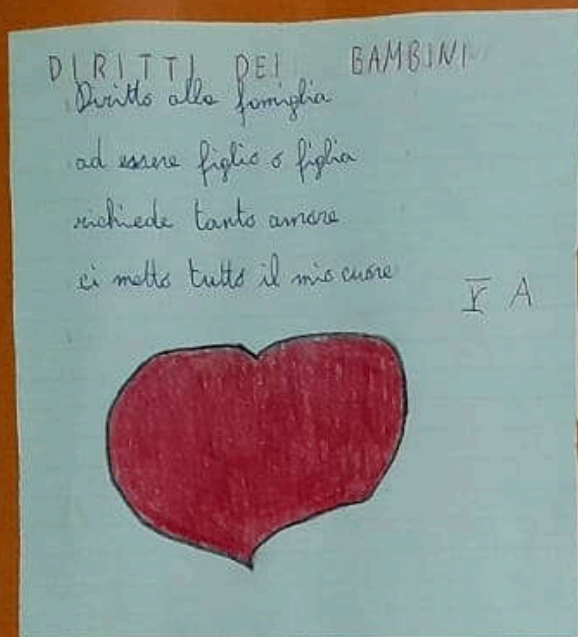 DIRITTI DEI BAMBINI
Diritto alla famiglia
ad essere figlio o figlia
richiede tanto amore
ci metto tutto il mio cuore
V A